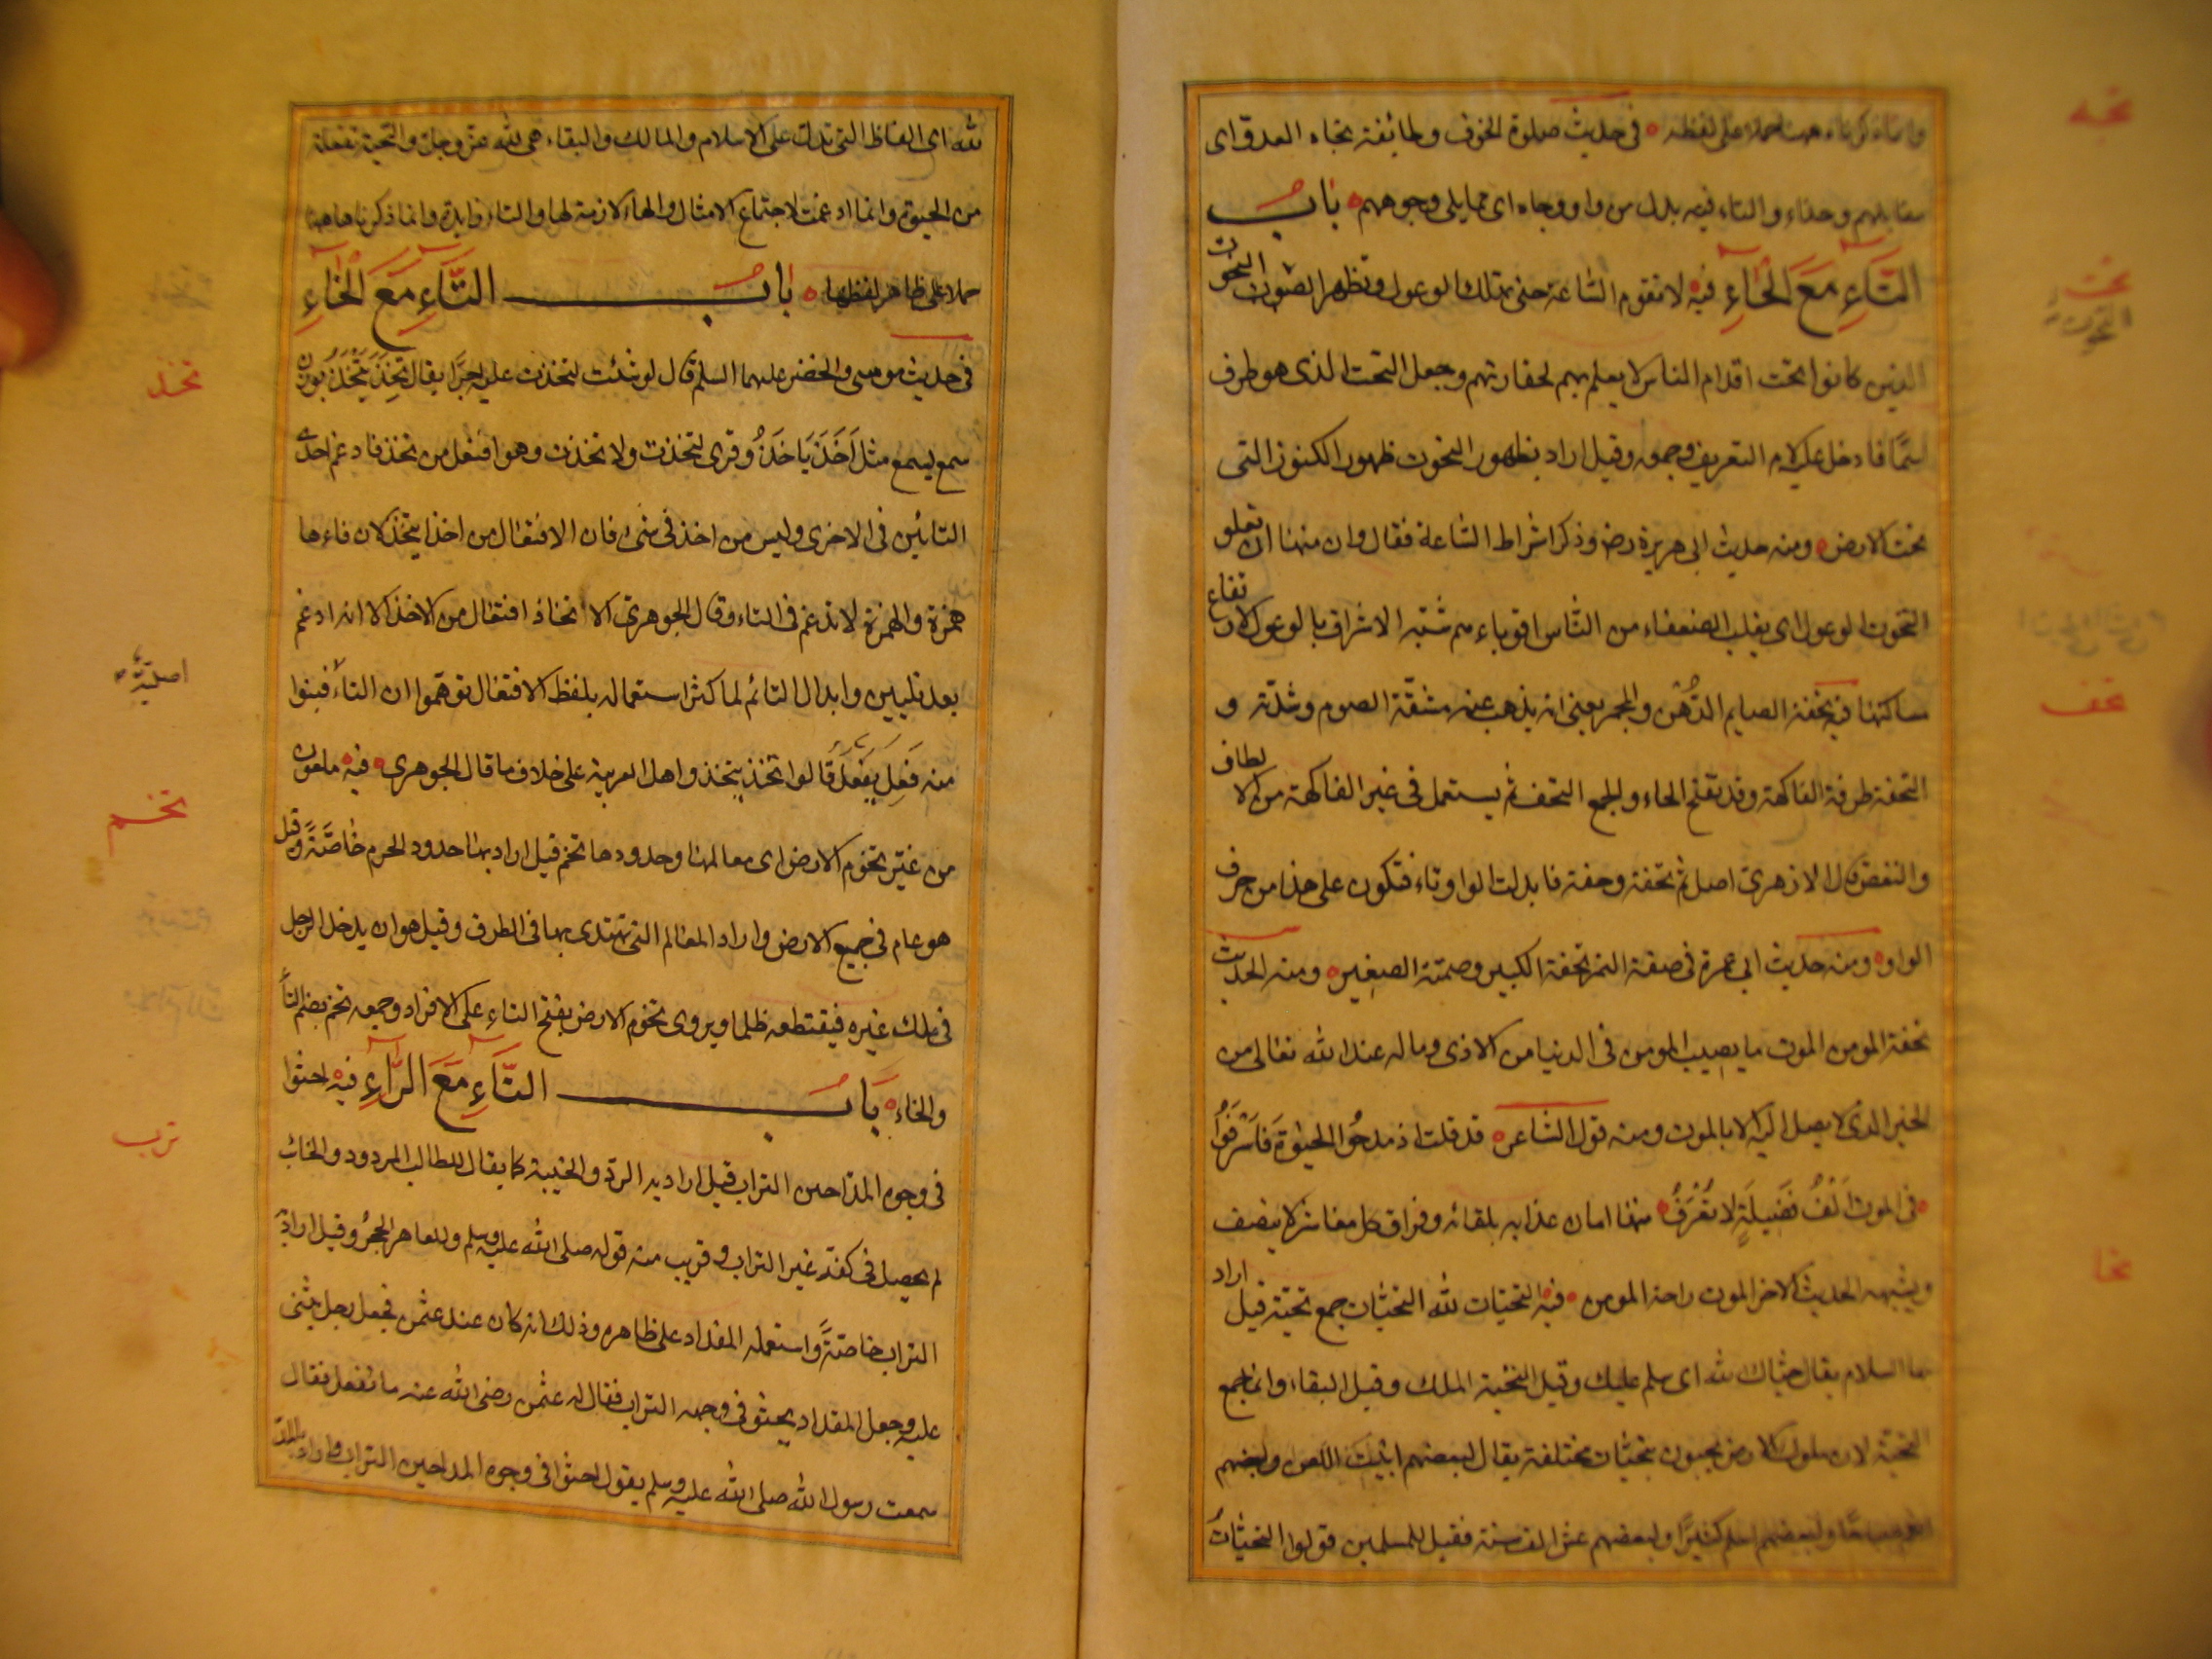 وانما ذكرناه ههنا حملا على لفظه ه في حديث صلوة الخوف وطائفة تجاه العدو اى
مقابلهم وحذاء والتاء فيه بدل من واو وجاه اى مما يلى وجوههم ه باب
التَّاءِ مَعَ الْحَاءِ فيه لا تقوم الساعة حتى تهلك الوعول وتظهر التحوت
الذين كانوا تحت اقدام الناس لا يعلم بهم لحقارتهم وجعل التحت الذى هو ظرف
اسمًا فادخل عليه لام التعريف وجمعه وقيل اراد بظهور التحوت ظهور الكنوز التى
تحت الارض ه ومنه حديث ابى هريرة رض وذكر اشراط الساعة فقال وان منها ان تعلو
التحوت الوعول اى يغلب الضعفاء من الناس اقوياءهم شبّه الاشراف بالوعول لارتفاع
مساكنها فيه تحفة الصايم الدُّهن والمجمر يعنى انه يذهب عنه مشقّة الصوم وشدّته و
التحفة طرفة الفاكهة وقد تفتح الحاء والجمع التحف ثم يستعمل فى غير الفاكهة من الالطاف
والنغص قال الازهرى اصل تحفة وحفة فابدلت الواو تاء فتكون على هذا من حرف
الواو ه ومنه حديث ابى عمرة فى صفة التمر تحفة الكبير وصمتة الصغير ه ومنه الحديث
تحفة المومن الموت ما يصيب المومن فى الدنيا من الاذى وماله عند الله تعالى من
الخير الذى لا يصل اليه الا بالموت ومنه قول الشاعر ه قد قلت اذ مدحُوا الحيوٰة فاسْرَفُوا
ه فى الموت اَلْفُ فَضِيلَةٍ لا تُعْرَفُ ه منها امان عذابه بلقائه وفراق كل معاشر لا ينصف
ويشبهه الحديث الاخر الموت راحة المومن ه فيه التحيات لله التحيات جمع تحية قيل اراد
بها السلام يقال حياك الله اى سلم عليك وقيل التحية الملك وقيل البقاء وانما جمع
التحية لان ملوك الارض يحيون بتحيات مختلفة يقال لبعضهم ابيت اللعن ولبعضهم
انعم صباحًا ولبعضهم اسلم كثيرًا ولبعضهم عش الف سنة فقيل للمسلمين قولوا التحيات
تجه
تحت
التحوت
تحف
تحا
لله اى الفاظ التى تدل على السلام والمالك والبقاء هى لله عز وجل والتحية تفعلة
من الحيوة وانما ادغمت لاجتماع الامثال والهاء لازمة لها والتاء زايدة وانما ذكرناها ههنا
حملا على ظاهر لفظها ه باب التَّاءِ مَعَ الْخَاءِ
فى حديث موسى والخضر عليهما السلم قال لو شئت لتخذت عليه اجرًا يقال تَخِذَ يَتْخَذُ بوزن
سمع يسمع مثل اَخَذَ يَاخُذُ وقرى لتخذت ولاتخذت وهو افتعل من تخذ فادغم احدى
التائين فى الاخرى وليس من اخذ فى شىء فان الافتعال من اخذ ايتخذ لان فاءها
همزة والهمزة لا تدغم فى التاء وقال الجوهرى الاتخاذ افتعال من الاخذ الا انه ادغم
بعد تليين وابدال التاء ثم لما كثر استعماله بلفظ الافتعال توهموا ان التاء فبنوا
منه فَعِلَ يَفْعَلُ قالوا تخذ يتخذ واهل العربية على خلاف ما قال الجوهرى ه فيه ملعون
من غيّر تخوم الارض اى معالمها وحدودها تخم قيل اراد بها حدود الحرم خاصّةً وقيل
هو عام فى جميع الارض واراد المعالم التى تهتدى بها فى الطرق وقيل هو ان يدخل الرجل
فى ملك غيره فيقتطعه ظلما ويروى تخوم الارض بفتح التاءِ على الافراد وجمعه تخم بضم التاءِ
والخاء ه باب التَّاءِ مَعَ الرَّاءِ فيه احثوا
فى وجوه المدّاحين التراب قيل اراد به الردّ والخيبة كما يقال للطالب المردود والخائب
لم يحصل فى كفّه غير التراب وقريب منه قوله صلى الله عليه وسلم وللعاهر الحجر وقيل اراد به
التراب خاصّةً واستعمله المقداد على ظاهره وذلك انه كان عند عثمن فجعل رجل يثنى
عليه وجعل المقداد يحثو فى وجهه التراب فقال له عثمن رضى الله عنه ما تفعل فقال
سمعت رسول الله صلى الله عليه وسلم يقول احثوا فى وجوه المداحين التراب واراد
تخذ
اصلية
تخم
ترب